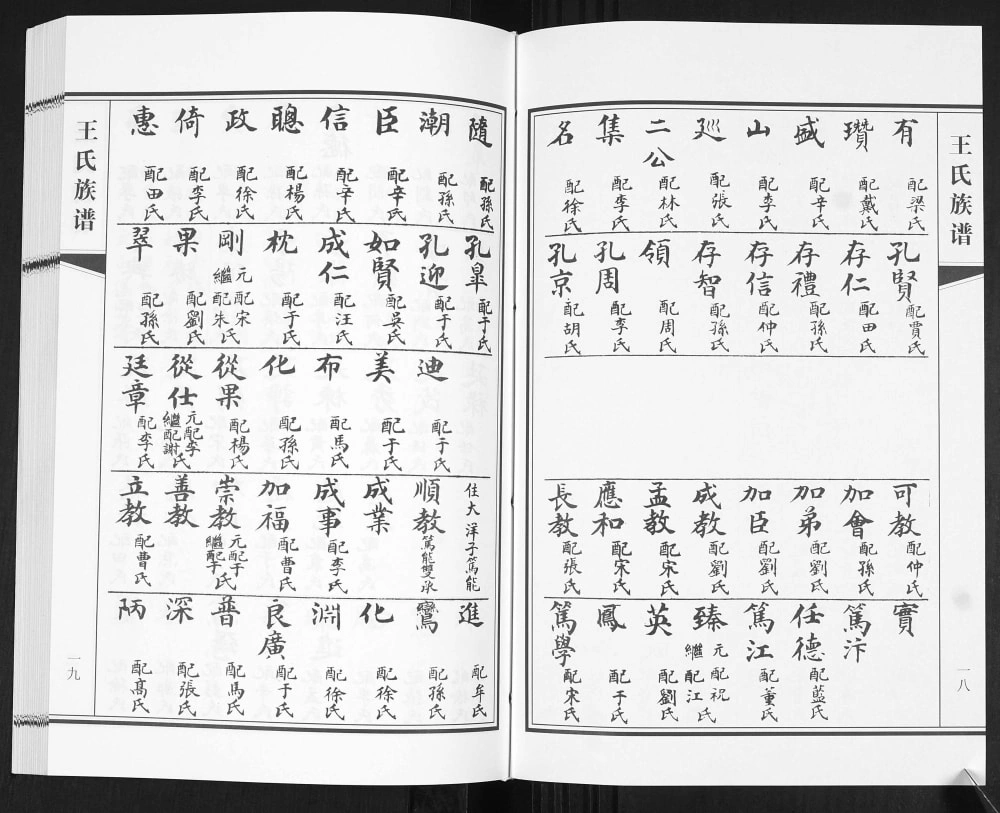 王氏族谱
一八
有 配梁氏
瓚 配戴氏
盛 配辛氏
山 配李氏
廵 配張氏
二公 配林氏
集 配李氏
名 配徐氏
孔賢 配賈氏
存仁 配田氏
存禮 配孫氏
存信 配仲氏
存智 配孫氏
領 配周氏
孔周 配李氏
孔京 配胡氏
可教 配仲氏
加會 配孫氏
加弟 配劉氏
加臣 配劉氏
成教 配劉氏
孟教 配宋氏
應和 配宋氏
長教 配張氏
實
篤汴
任德 配藍氏
篤江 配董氏
臻 元配祝氏 繼配江氏
英 配劉氏
鳳 配于氏
篤學 配宋氏
隨 配孫氏
潮 配孫氏
臣 配辛氏
信 配辛氏
聰 配楊氏
政 配徐氏
倚 配李氏
惠 配田氏
孔臯 配于氏
孔迎 配于氏
如賢 配吳氏
成仁 配汪氏
枕 配于氏
剛 元配宋氏 繼配朱氏
果 配劉氏
翠 配孫氏
迪 配于氏
美 配于氏
布 配馬氏
化 配孫氏
從果 配楊氏
從仕 元配李氏 繼配謝氏
廷章 配李氏
住大洋子篤能
順教 篤能雙承
成業
成事 配李氏
加福 配曹氏
崇教 元配于氏 繼配李氏
善教
立教 配曹氏
進 配牟氏
鸞 配孫氏
化 配徐氏
淵 配徐氏
良廣 配于氏
普 配馬氏
深 配張氏
昞 配高氏
王氏族谱
一九